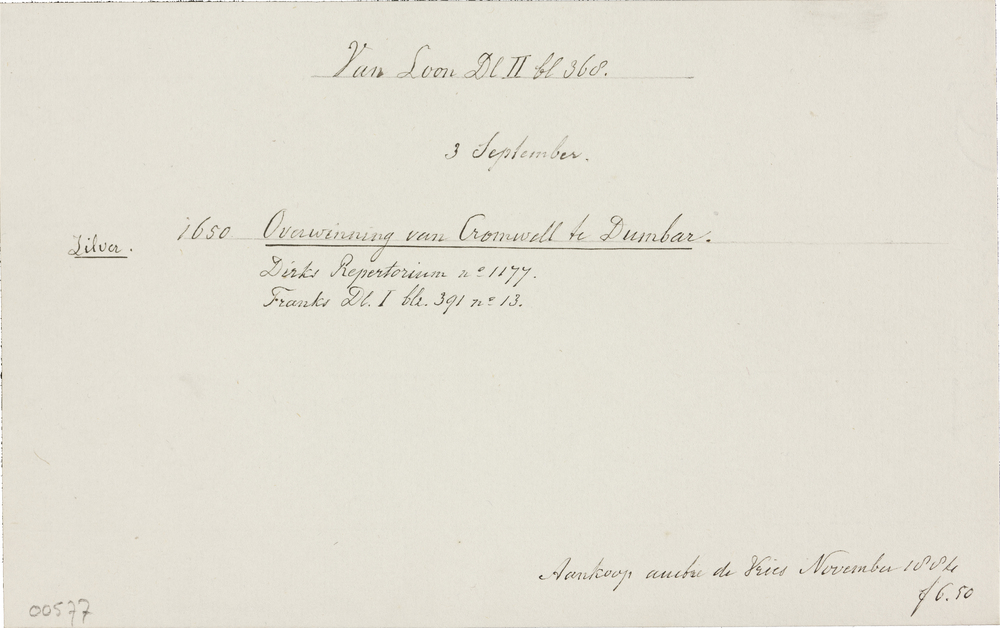 Van Loon Dl II bl 368.
3 September.
Zilver.
1650 Overwinning van Cromwell te Dumbar.
Dirks Repertorium no 1177.
Franks Dl. I blz. 391 no 13.
Aankoop de Vries November 1884
ƒ 6.50
00577